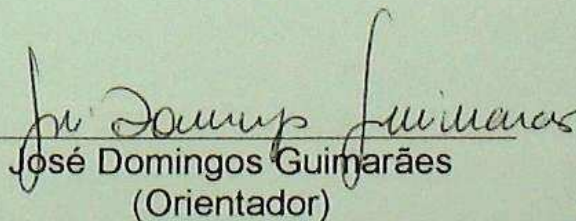 José Domingos Guimarães
José Domingos Guimarães
(Orientador)